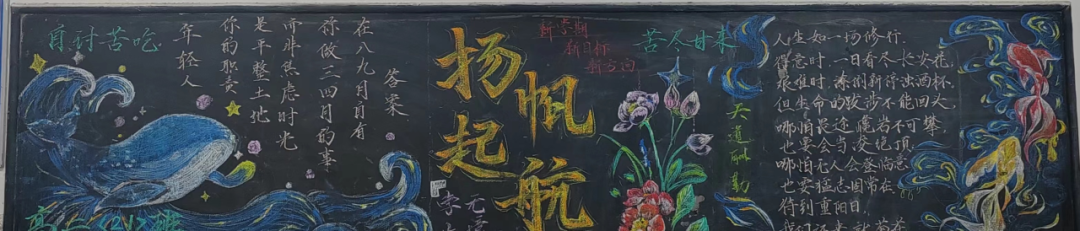 肯讨苦吃
年轻人
你的职责
是平整土地
而非焦虑时光
你做三四月的事
在八九月自有
答案
扬帆
起航
新学期
新目标
新方向
苦尽甘来
天道酬勤
人生如一场修行，
得意时，一日看尽长安花，
艰难时，潦倒新停浊酒杯，
但生命的跋涉不能回头，
哪怕畏途巉岩不可攀，
也要会当凌绝顶，
哪怕无人会登临意，
也要猛志固常在，
待到重阳日，